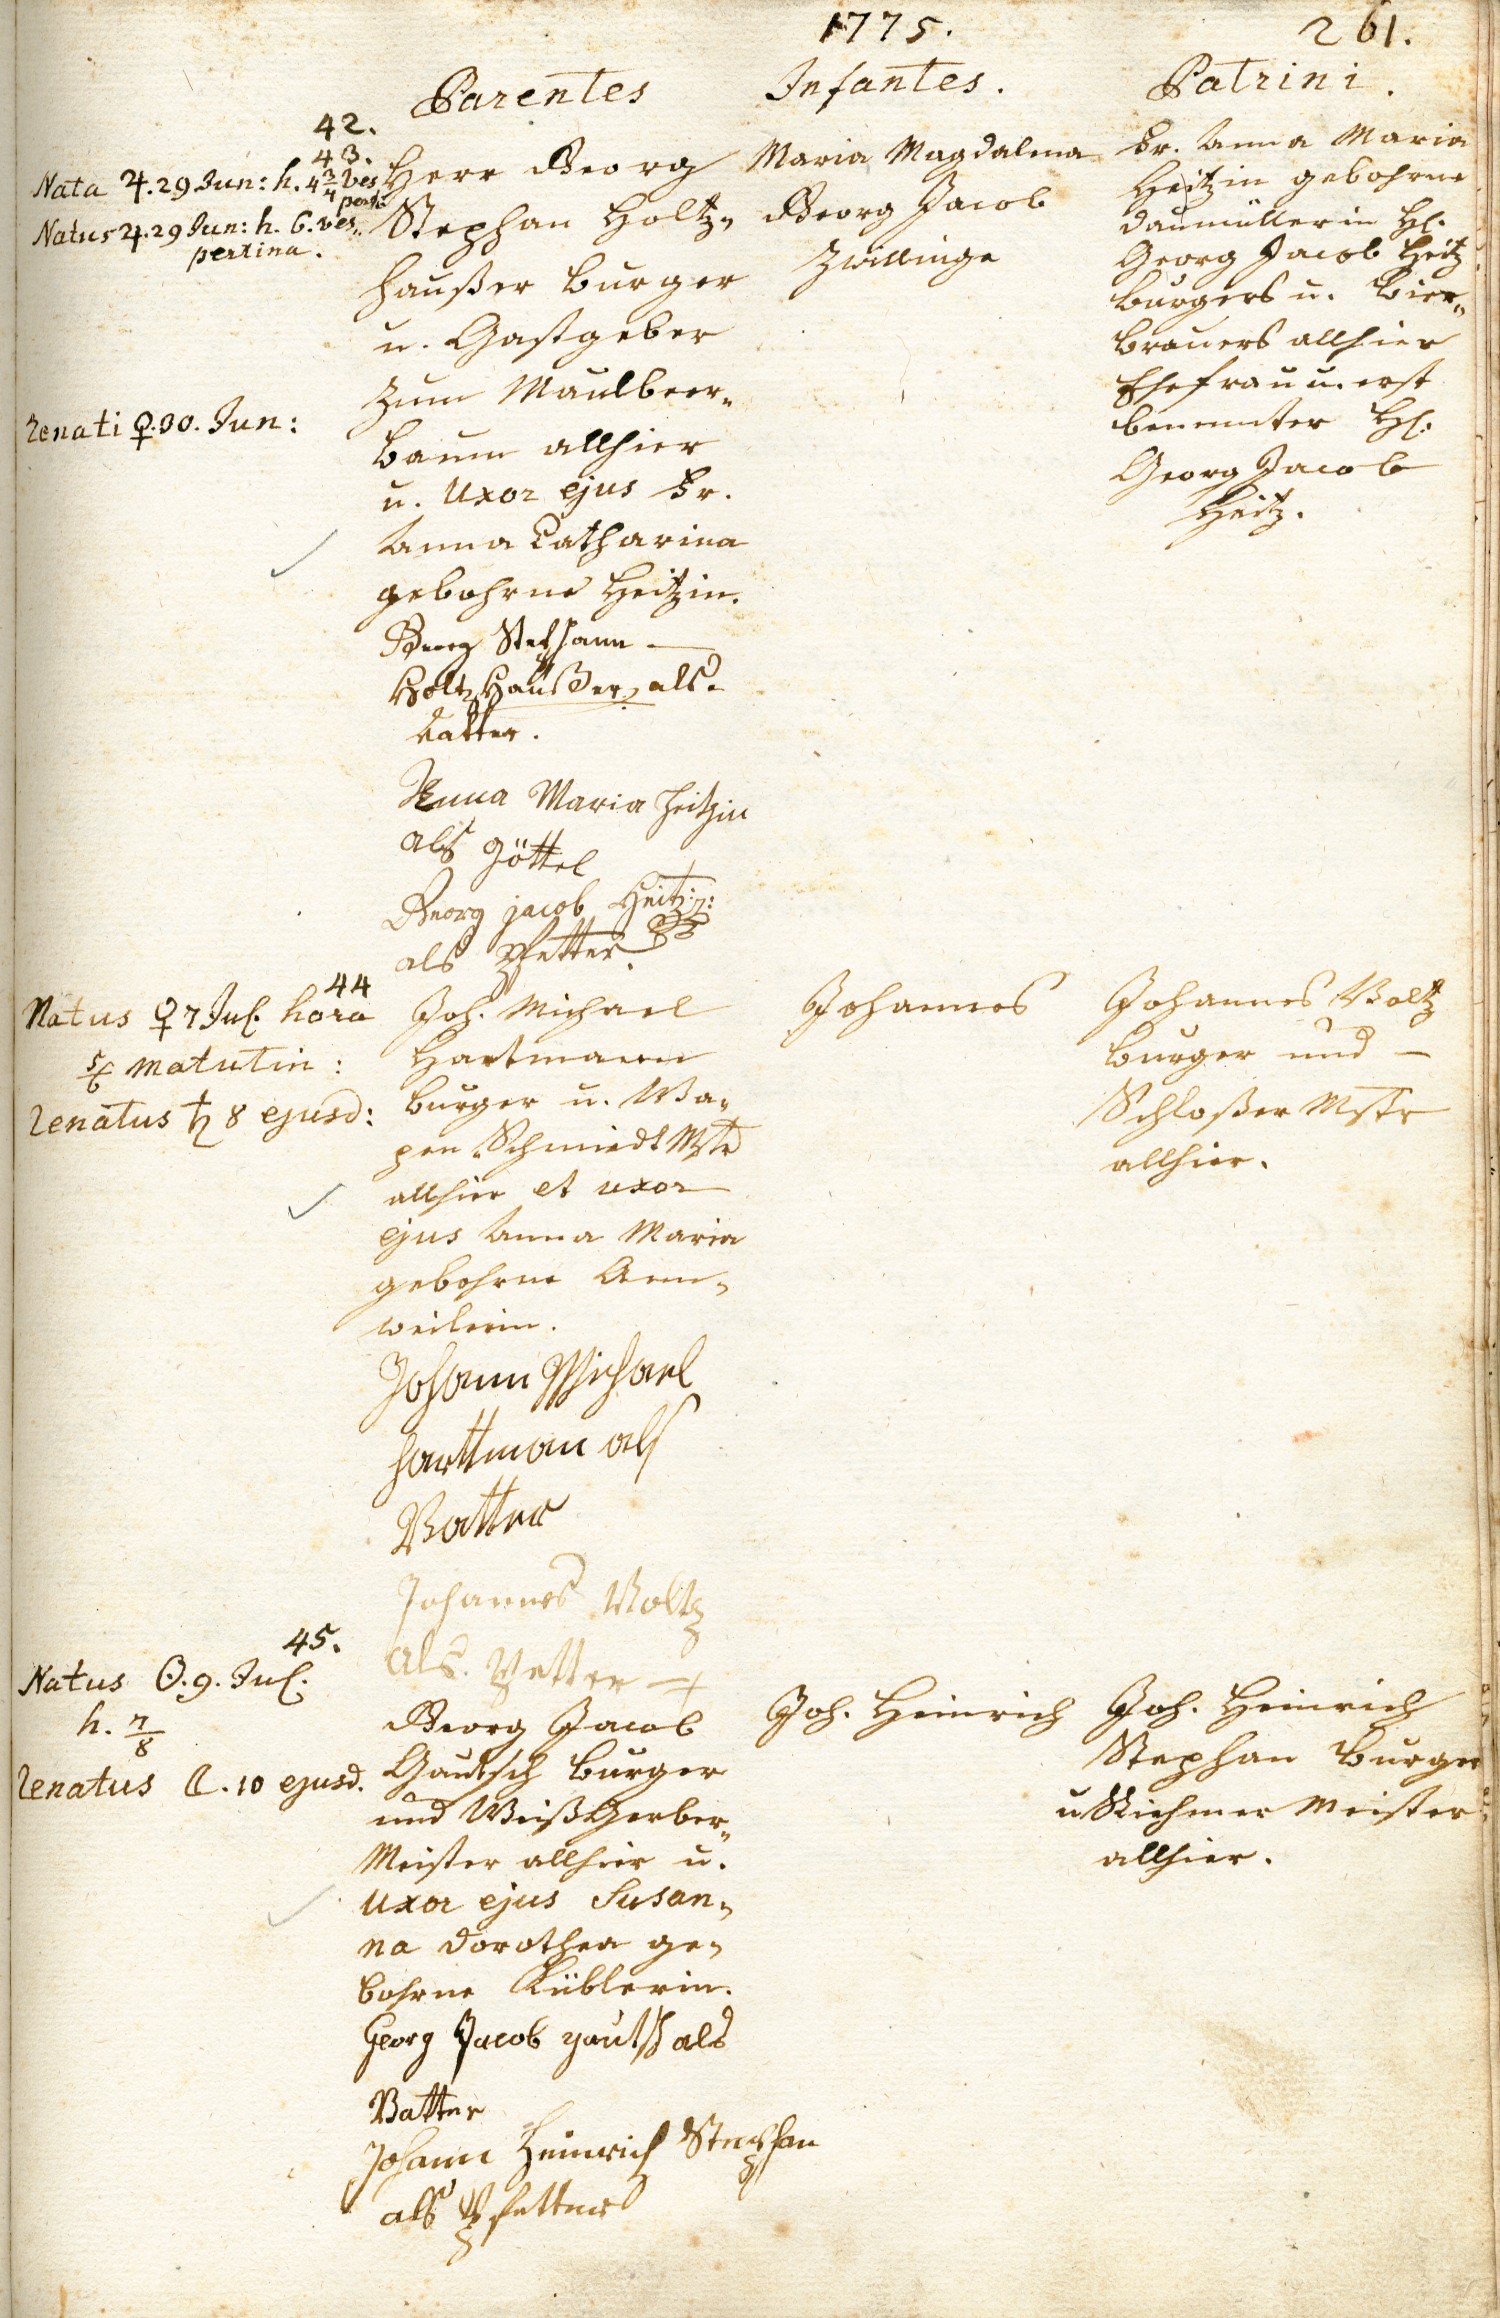 1775.
261.
Parentes
Infantes.
Patrini.
42.
43.
Nata ♃. 29 Jun: h. 4 3/4 ves
pert:
Natus ♃. 29 Jun: h. 6. ves„
pertina.
Renati ♀. 30. Jun:
Herr Georg
Stephan Holtz„
haußer burger
u. Gastgeber
zum Maulbeer„
baum allhier
u. Uxor ejus Fr.
Anna Catharina
gebohrne Heitzin.
Georg Stephann
Holtz Haußer, als
Vatter.
Anna Maria heitzin
als göttel
Georg jacob Heitz:
als Pfetter.
Maria Magdalena
Georg Jacob
Zwillinge
Fr. Anna Maria
Heitzin gebohrne
Daumüllerin H.
Georg Jacob Heitz
burgers u. bier„
brauers allhier
Ehefrau u. erst
benennter H.
Georg Jacob
Heitz.
44
Natus ♀ 7 Jul. hora
5/6 matutin:
Renatus ♄ 8 ejusd:
Joh. Michael
Hartmann
burger u. Wa„
pen Schmiedt Mstr
allhier et uxor
ejus Anna Maria
gebohrne Ann„
weilerin.
Johann Michael
harttman als
Vatter
Johannes Voltz
als Petter
Johannes
Johannes Voltz
burger und
Schloßer Mstr
allhier.
45.
Natus ☉. 9. Jul.
h. 7/8
Renatus ☾. 10 ejusd.
Georg Jacob
Gautsch burger
und Weiß Gerber„
Meister allhier u.
Uxor ejus Susan„
na Dorothea ge„
bohrne Küblerin.
Georg Jacob gautsch als
Vatter
Johann Heinrich Stephan
als Pfetter
Joh. Heinrich
Joh. Heinrich
Stephan burger
u Riehmer Meister
allhier.